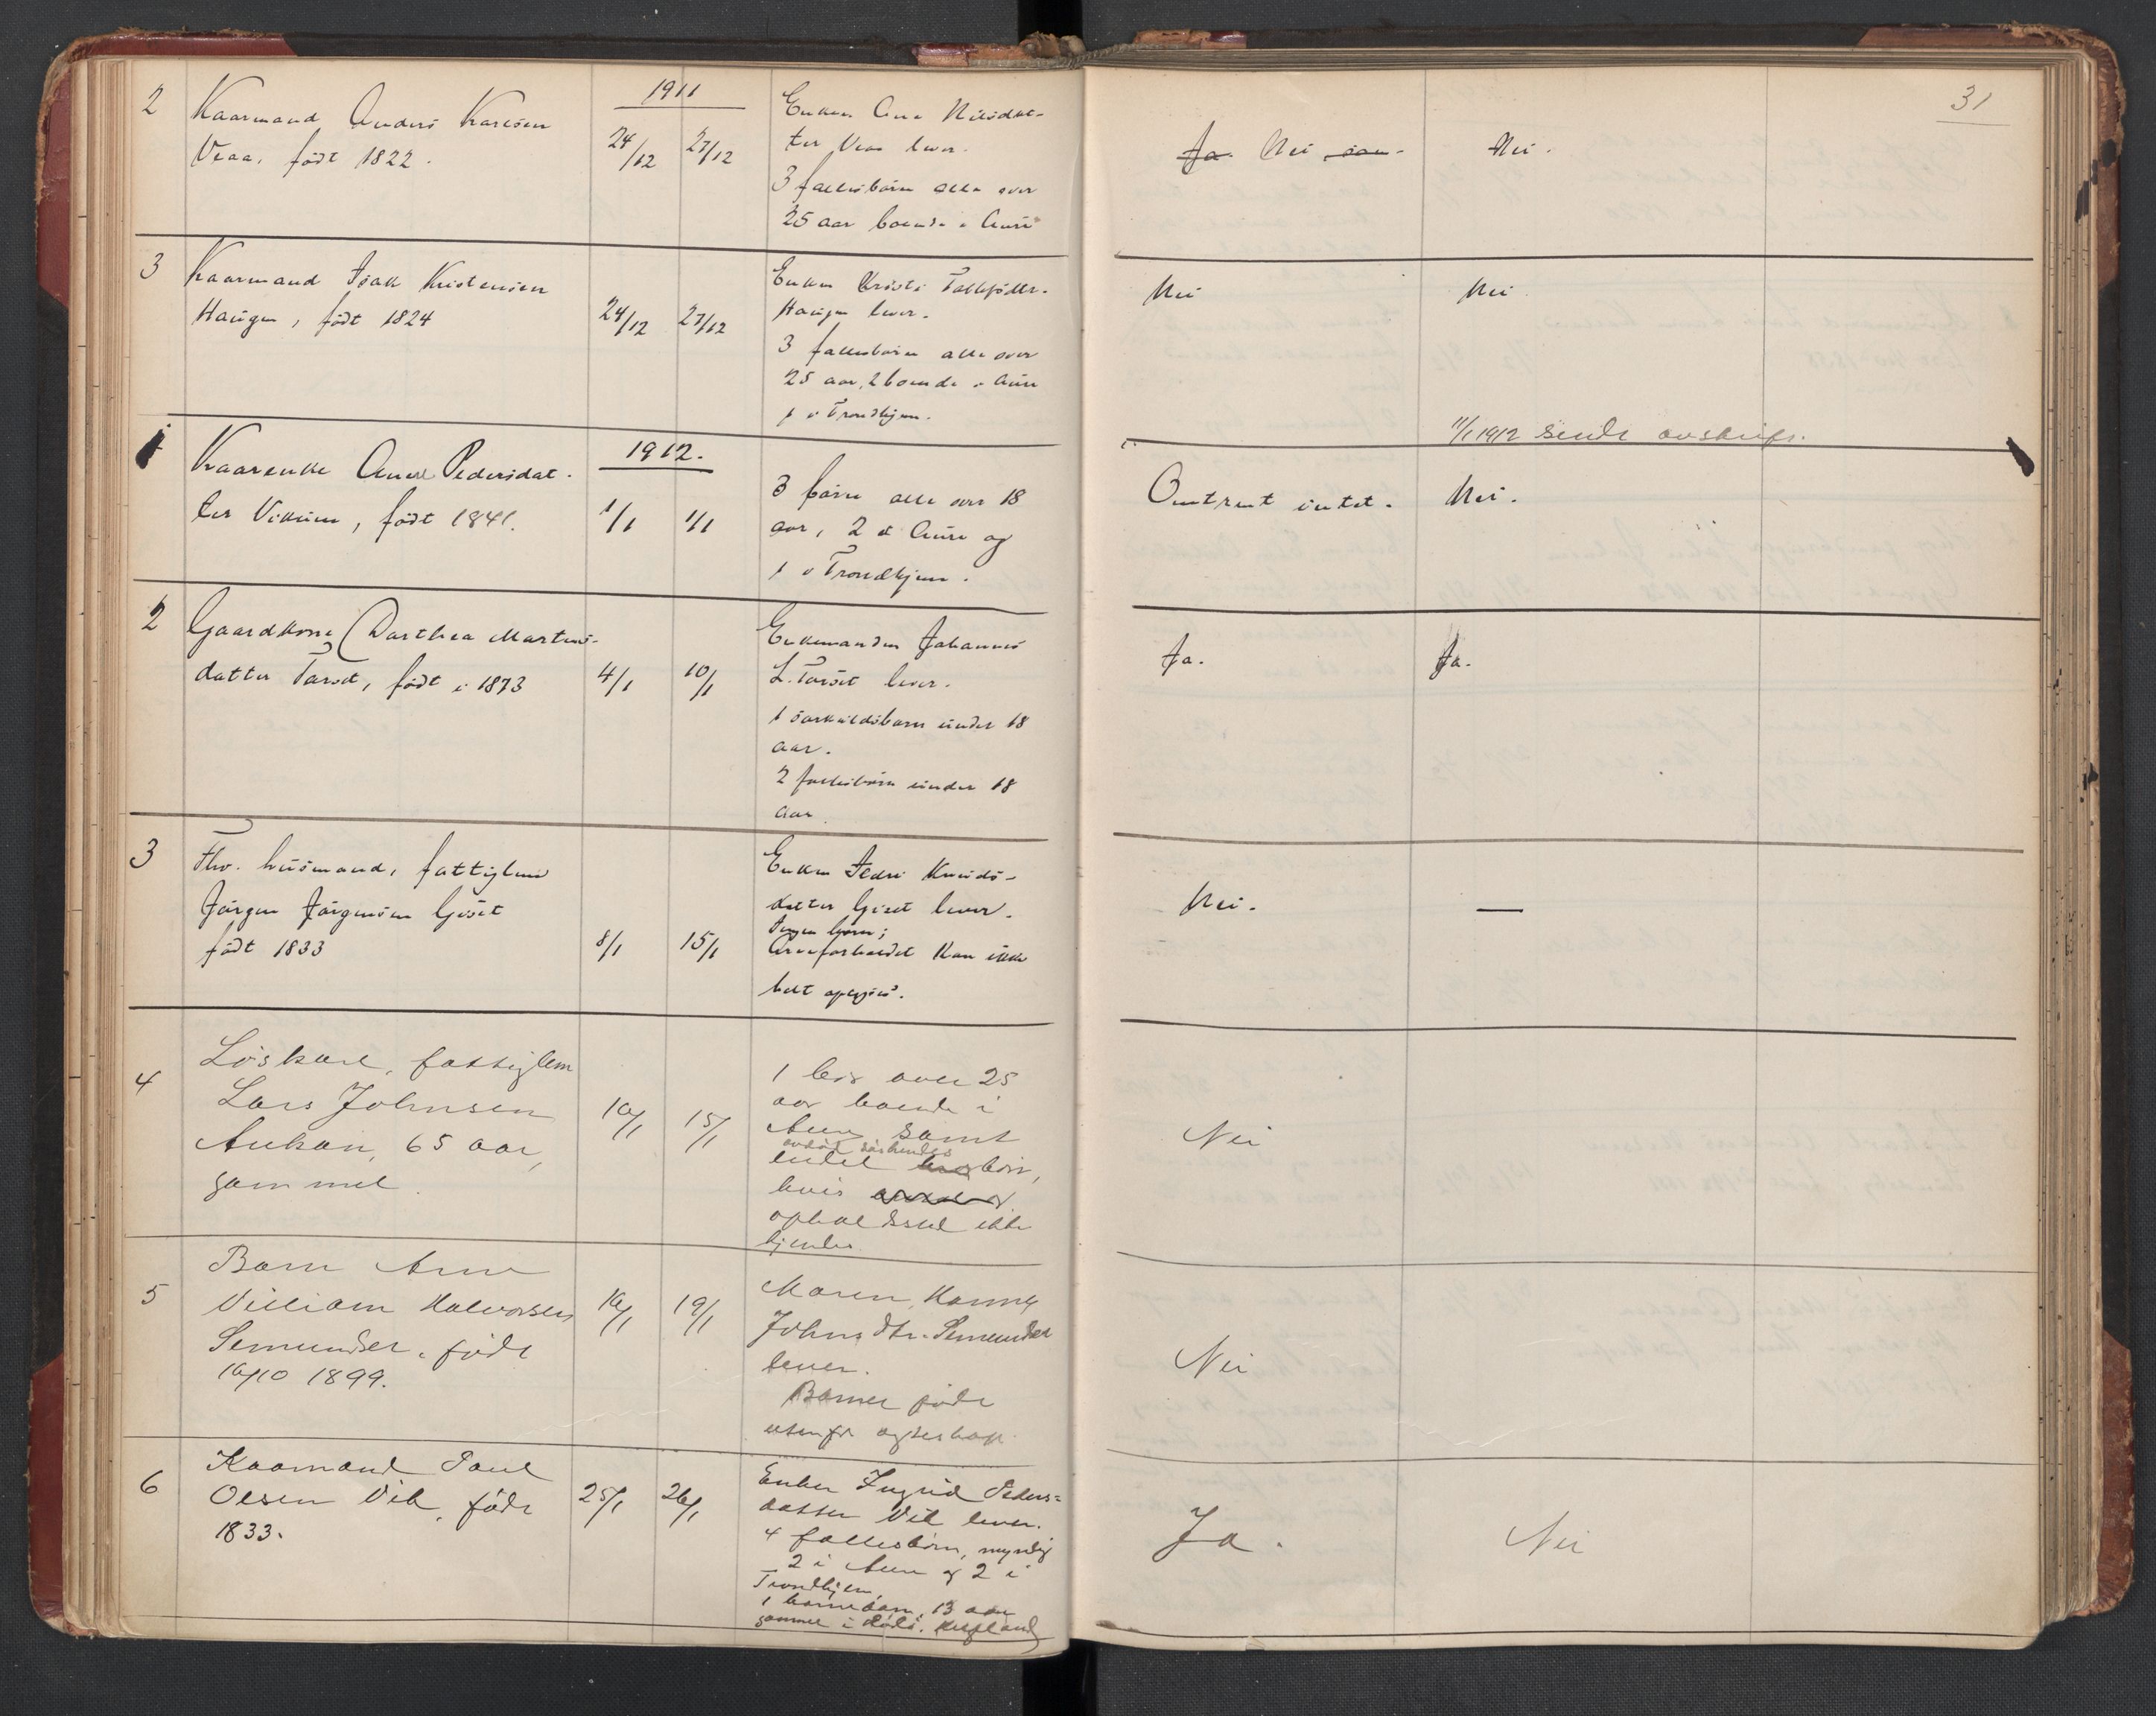 31
1911
2 Kaarmand Anders Karlsen
Vraa, født 1822.
24/12 27/12
Enken Ane Nilsdat-
ter Vraa lever.
3 fællesbörn alle over
25 aar boende i Aure
Ja. Nei
Nei.
3 Kaarmand Isak Kristensen
Haugen, født 1824
24/12 27/12
Enken Kristi
Haugen lever.
3 fællesbörn alle over
25 aar, 2 boende i Aure
1 i Trondhjem.
Nei
Nei
11/1 1912 Sendt avskrift.
1912.
1 Kaarenke Ane Pedersdat-
ter Viksund, født 1841.
1/1 1/1
3 børn alle over 18
aar, 2 i Aure og
1 i Trondhjem.
Omtrent intet.
Nei.
2 Gaardkone Dorthea Martins-
datter Torset, født i 1873
4/1 10/1
Enkemanden Johannes
L. Torset lever.
1 særkuldsbarn under 18
aar.
2 fællesbörn under 18
aar.
Ja.
Ja.
3 Fhv. husmand, fattiglem
Jørgen Jørgensen Gjøset
født 1833
8/1 15/1
Enken Sedri Knuds-
datter Gjøset lever.
Ingen børn;
Arveforholdet kan ikke
helt opgjøres.
Nei.
—
4 Løskarl, fattiglem
Lars Johnsen
Aukan, 65 aar,
gammel.
10/1 15/1
1 bror over 25
aar boende i
Aure samt
avdød søskendes
endel børn,
hvis
opholdssted ikke
kjendes.
Nei
5 Barn Arne
Villiam Halvorsen
Semundset, født
10/10 1899.
10/1 19/1
Moren, Hanna
Johnsdtr. Semundset
lever.
Barnet født
utenfor egteskap.
Nei
6 Kaarmand Paul
Olsen Vik, født
1833.
25/1 26/1
Enken Ingrid Peders=
datter Vik lever.
4 fællesbørn, myndig
2 i Aure og 2 i
Trondhjem.
1 barnebarn, 13 aar
gammel i Rødø. Helgeland
Ja.
Nei